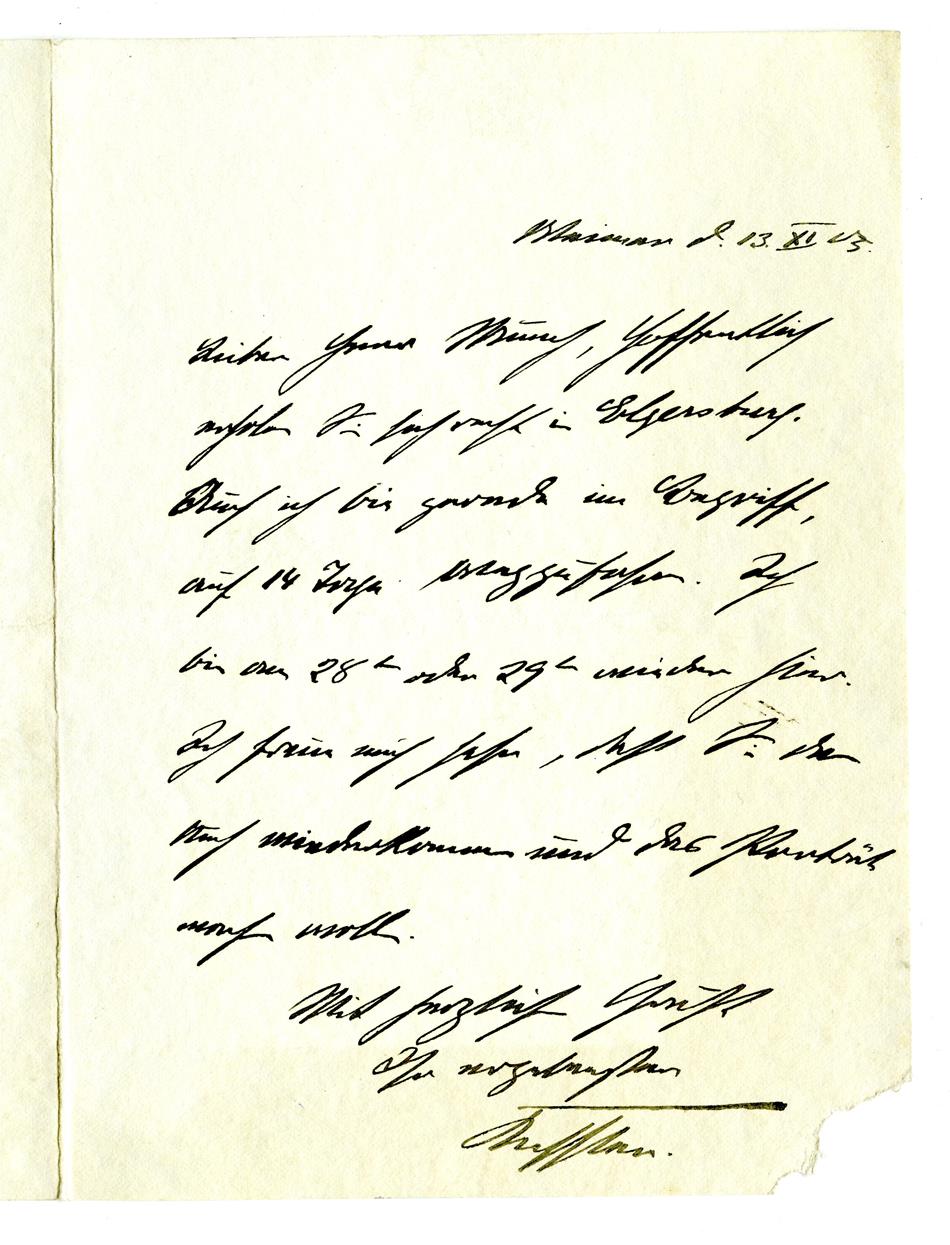 Weimar d. 13. XI 05.
Lieber Herr Munch, Hoffentlich
erholen Sie sich recht in Elgersburg.
Auch ich bin gerade im Begriff,
auf 14 Tage wegzufahren. Ich
bin am 28ten oder 29ten wieder hier.
Ich freue mich sehr, dass Sie dann
auch wiederkommen und das Porträt
machen wollen.
Mit herzlichen Grüssen
Ihr ergebenster
Kessler.